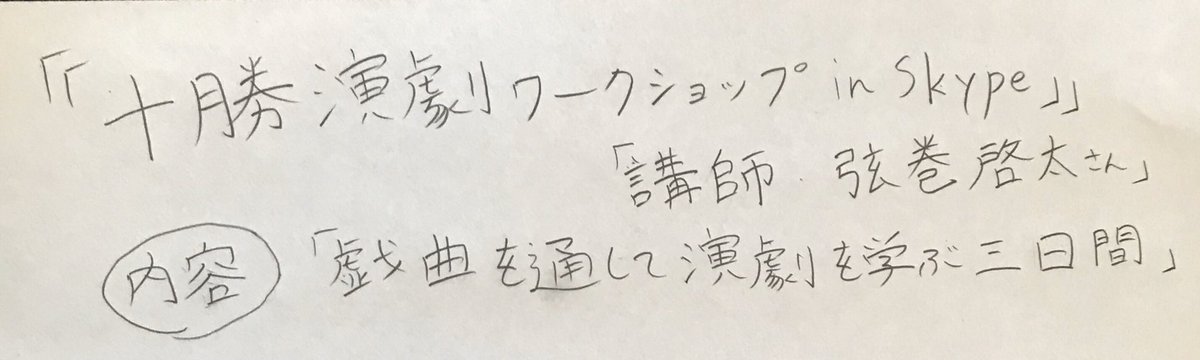 「「十勝演劇ワークショップ in Skype」」
「講師 弦巻啓太さん」
内容 「戯曲を通して演劇を学ぶ三日間」